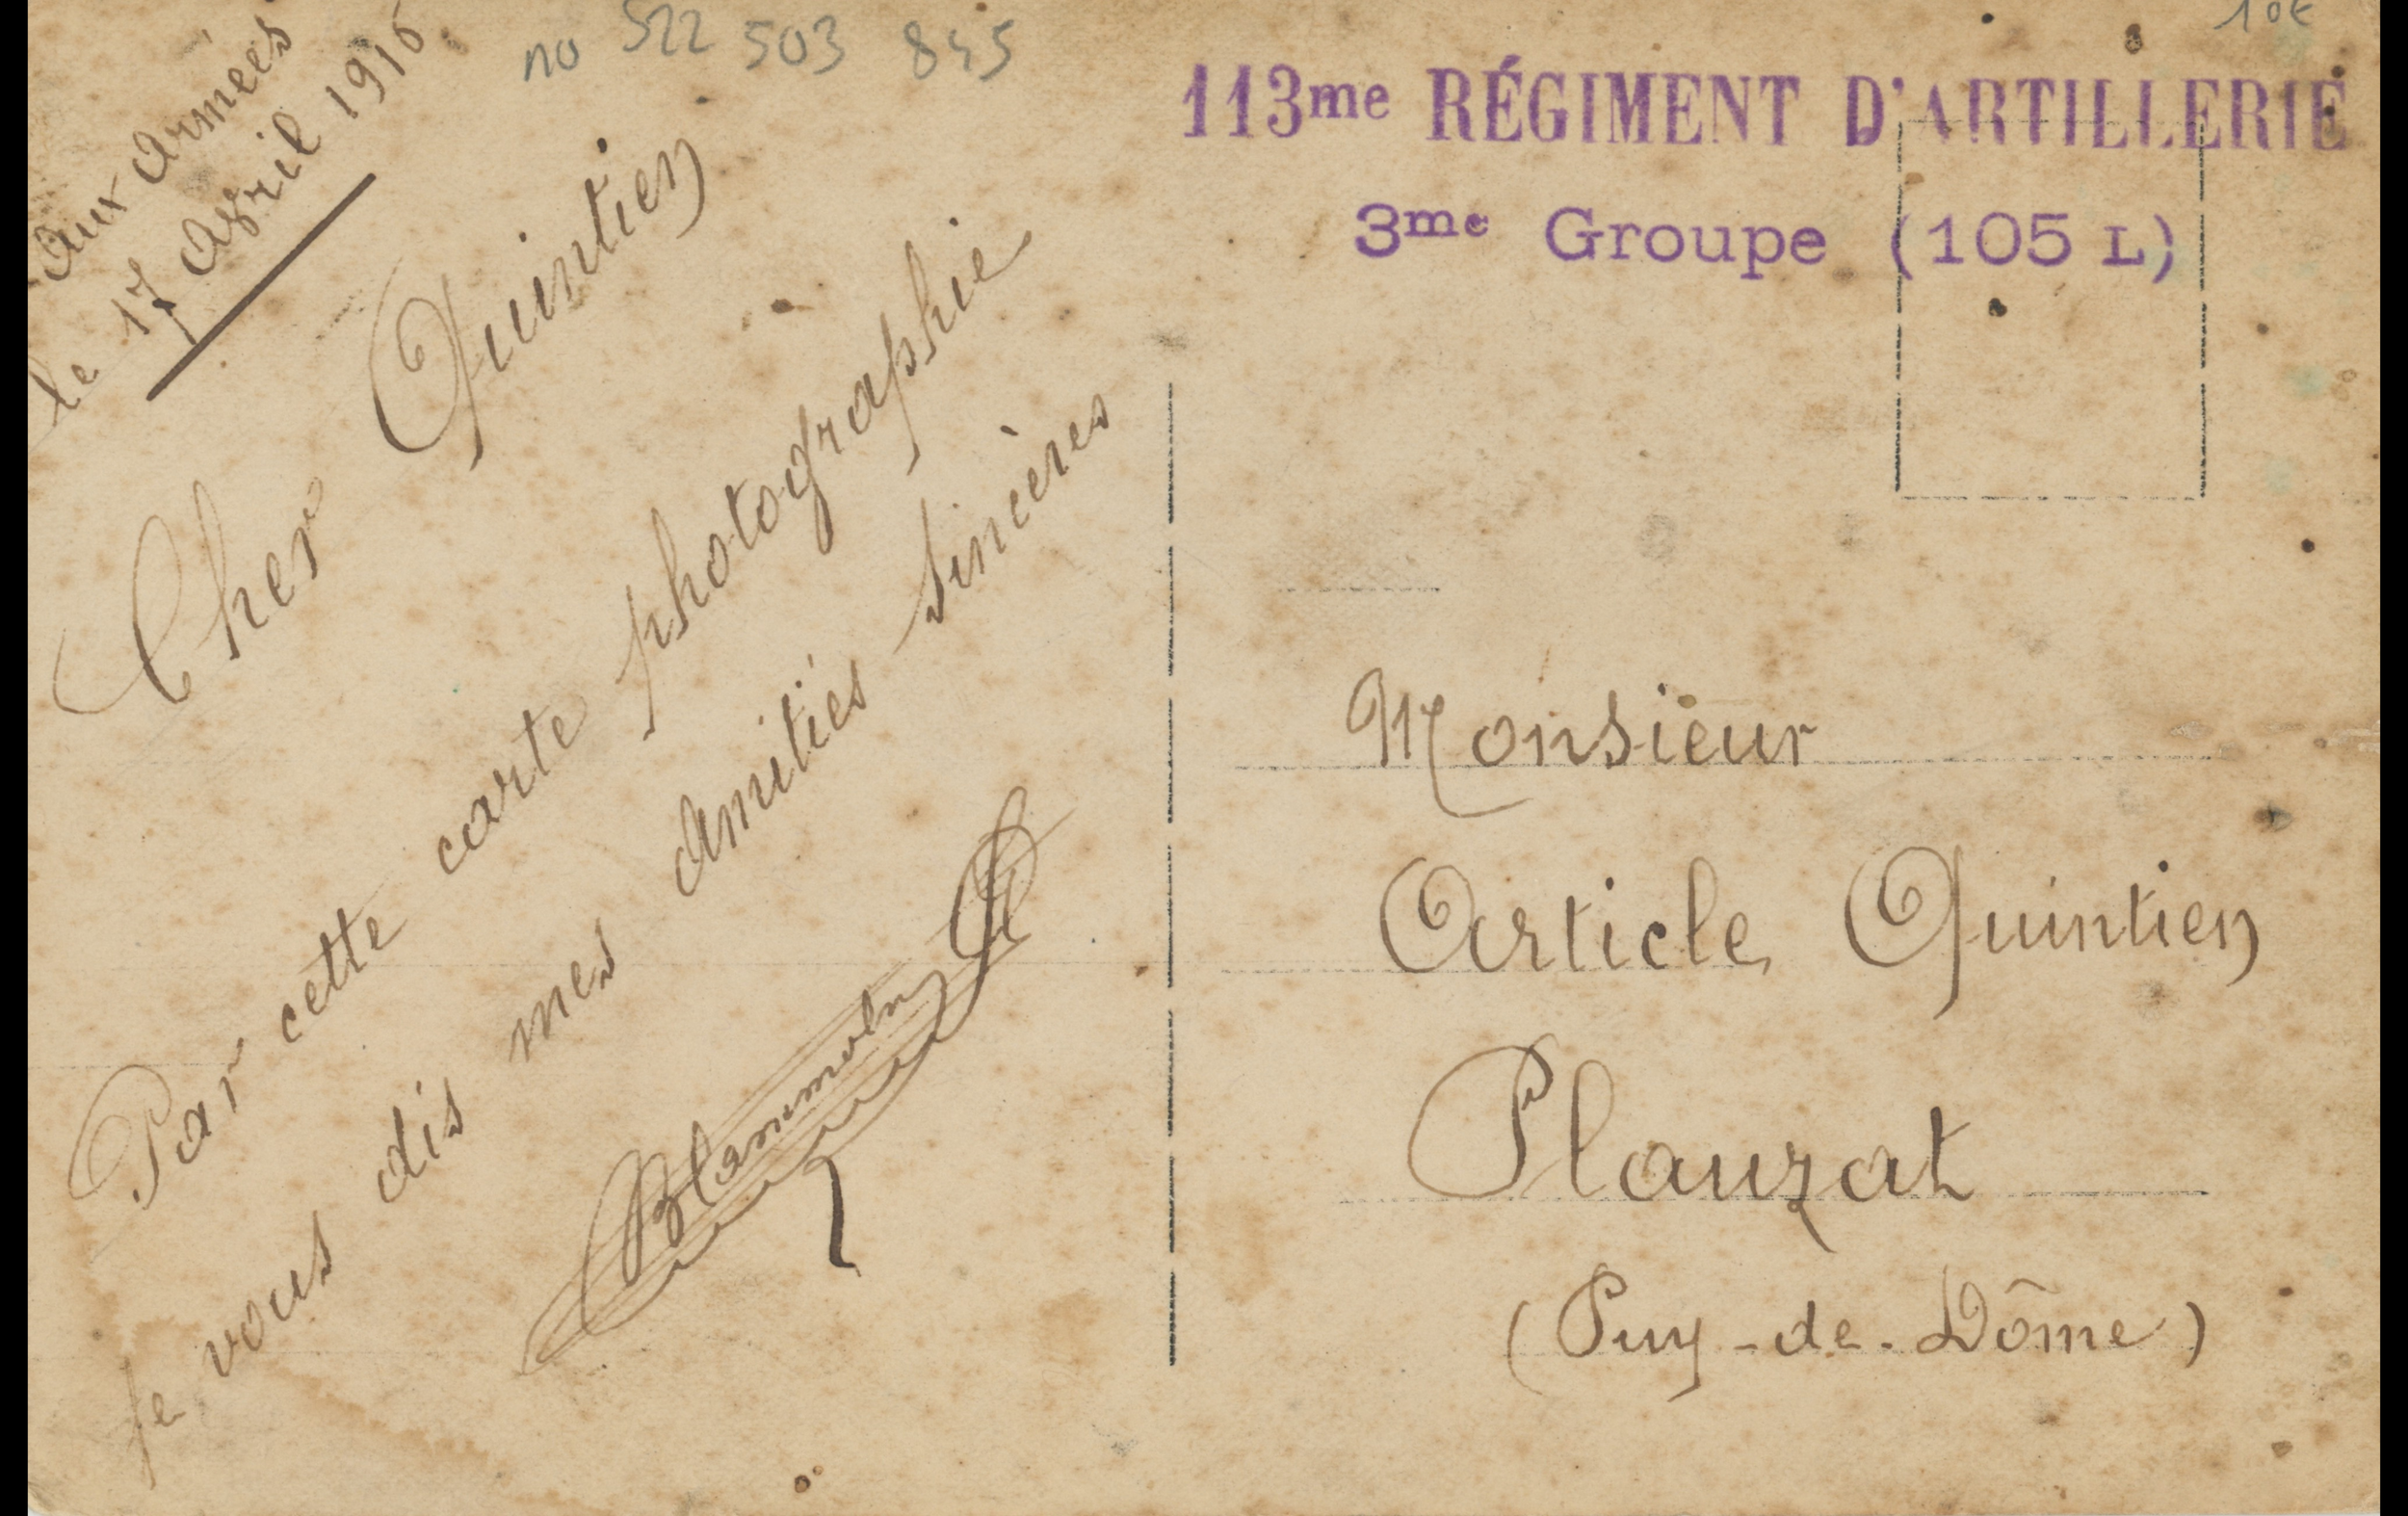 Aux armées
le 17 Avril 1916
no 522 503 845
10€
113me RÉGIMENT D'ARTILLERIE
3me Groupe (105 L)
Cher Quintien
Par cette carte photographie
je vous dis mes amitiés sincères
Monsieur
Article Quintien
Plauzat
(Puy-de-Dôme)